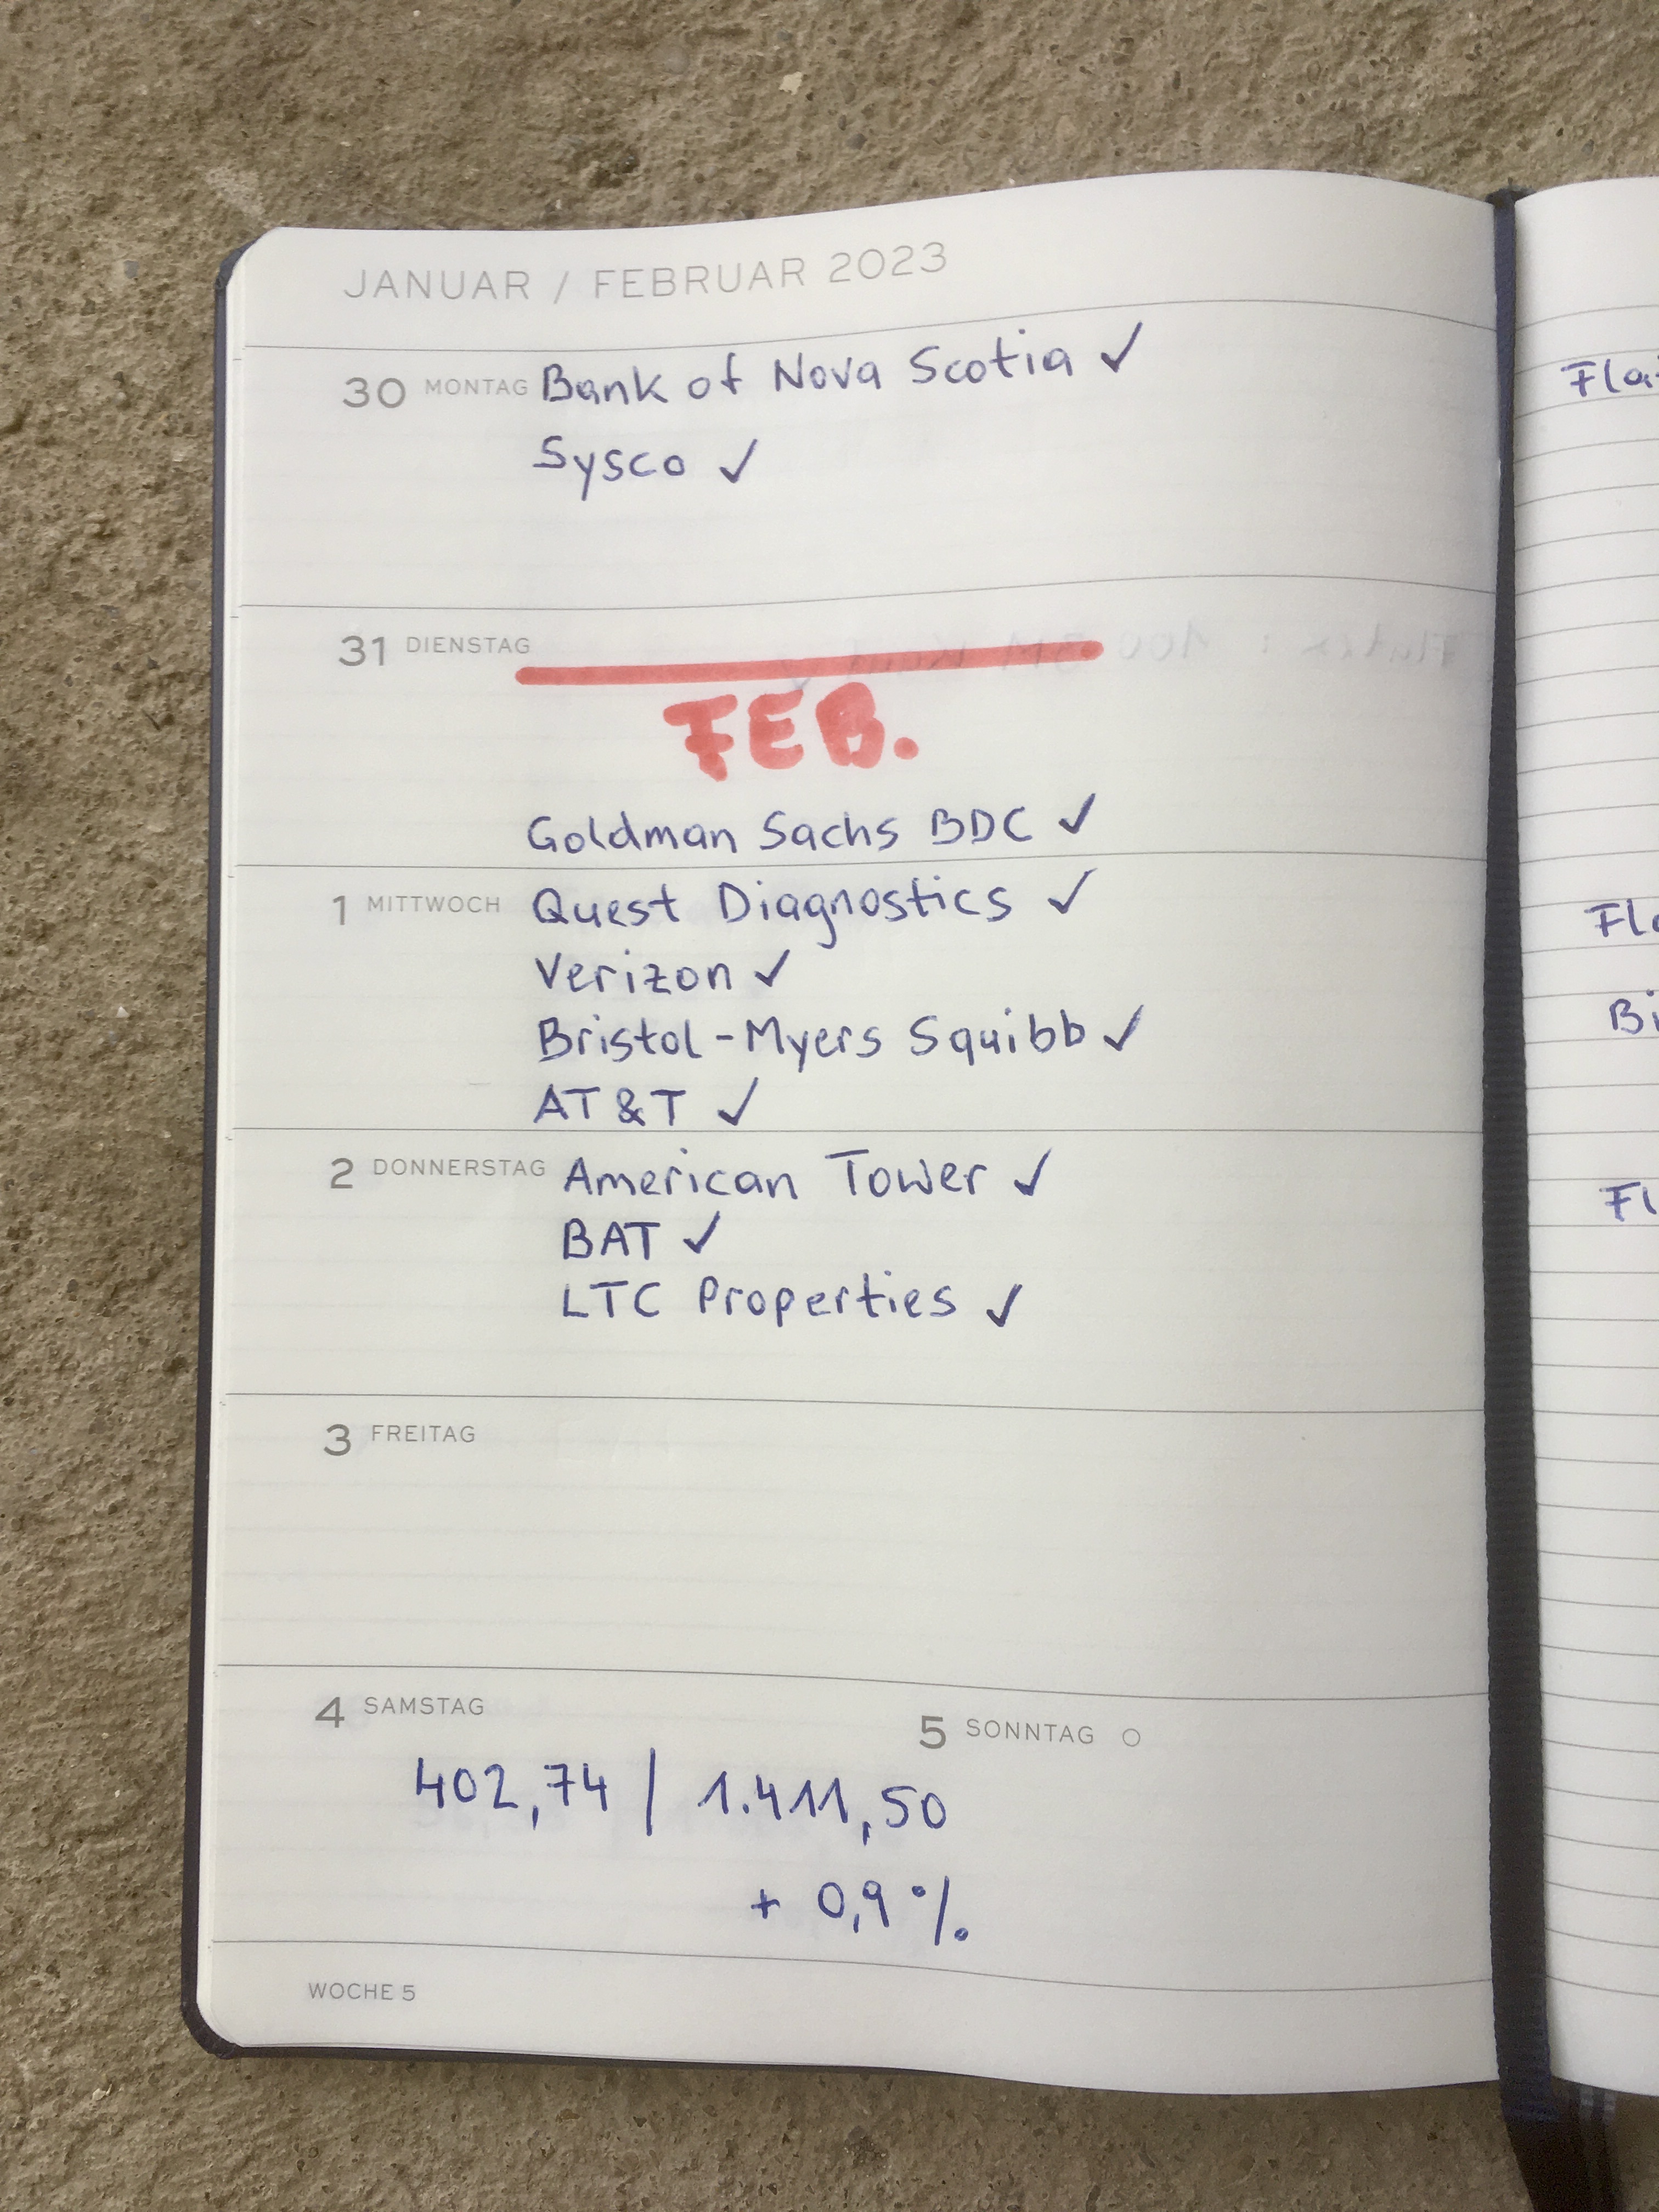 JANUAR / FEBRUAR 2023
30 MONTAG Bank of Nova Scotia ✓
Sysco ✓
31 DIENSTAG
FEB.
Goldman Sachs BDC ✓
1 MITTWOCH Quest Diagnostics ✓
Verizon ✓
Bristol-Myers Squibb ✓
AT&T ✓
2 DONNERSTAG American Tower ✓
BAT ✓
LTC Properties ✓
3 FREITAG
4 SAMSTAG
5 SONNTAG
402,74 | 1.411,50
+ 0,9 %
WOCHE 5